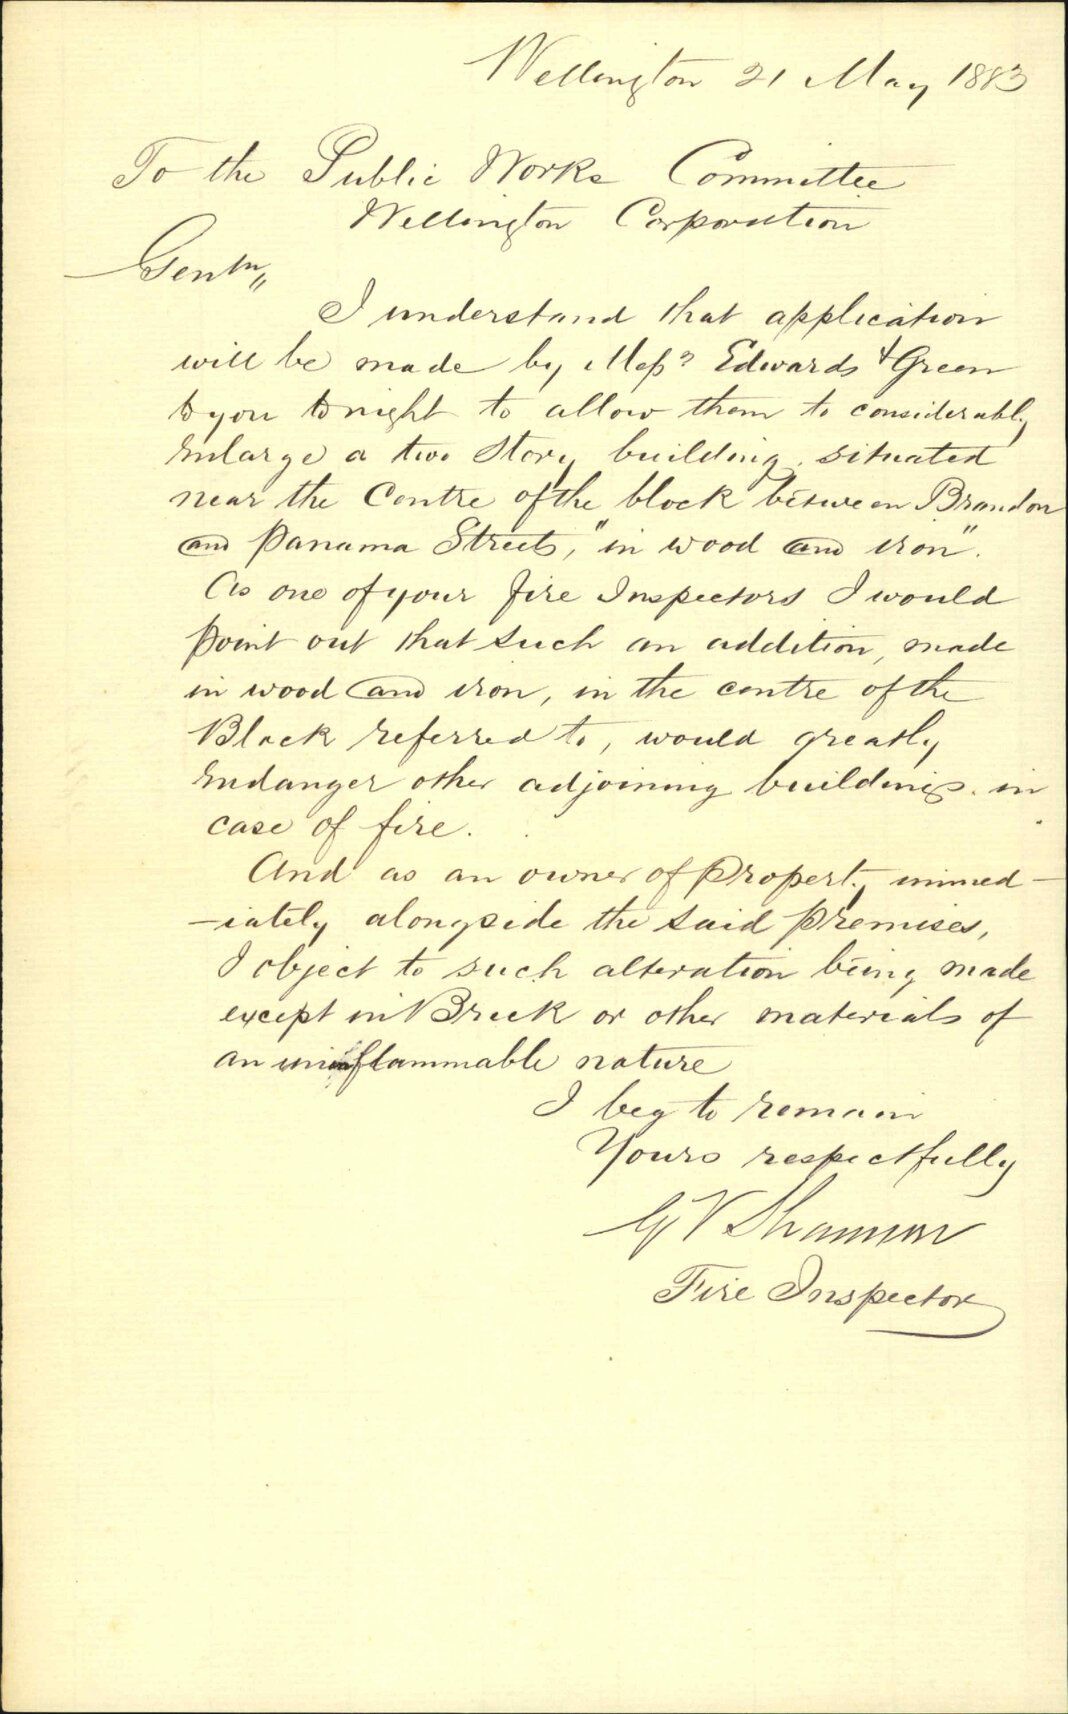 Wellington 21 May 1883
To the Public Works Committee
Wellington Corporation
Gentn,,
I understand that application
will be made by Messrs Edwards & Green
to you tonight to allow them to considerably
enlarge a two Story building, situated
near the Centre of the block between Brandon
and Panama Streets, "in wood and iron".
As one of your fire Inspectors I would
point out that such an addition, made
in wood and iron, in the centre of the
Block referred to, would greatly
endanger other adjoining buildings. in
case of fire.
And as an owner of property immed-
-iately alongside the said premises,
I object to such alteration being made
except in Brick or other materials of
an uninflammable nature
I beg to remain
Yours respectfully
G V Shannon
Fire Inspector